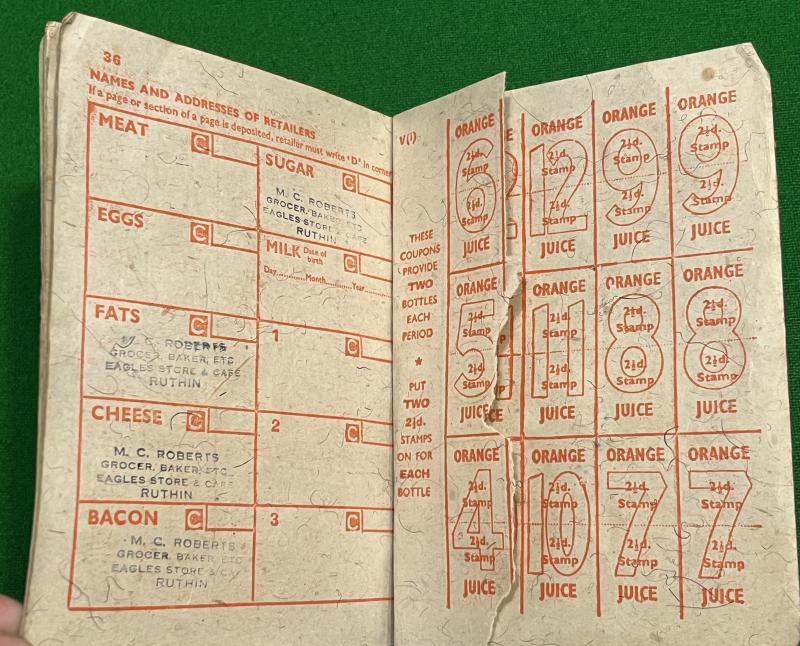 36
NAMES AND ADDRESSES OF RETAILERS
If a page or section of a page is deposited, retailer must write 'D' in corner
MEAT C
SUGAR C
M. C. ROBERTS
GROCER, BAKER, ETC
EAGLES STORE & CAFE
RUTHIN
EGGS C
MILK Date of birth C
Day............Month............Year............
FATS C
M. C. ROBERTS
GROCER, BAKER, ETC
EAGLES STORE & CAFE
RUTHIN
1 C
CHEESE C
M. C. ROBERTS
GROCER, BAKER, ETC
EAGLES STORE & CAFE
RUTHIN
2 C
BACON C
M. C. ROBERTS
GROCER, BAKER, ETC
EAGLES STORE & CAFE
RUTHIN
3 C
V(i)
THESE
COUPONS
PROVIDE
TWO
BOTTLES
EACH
PERIOD
★
PUT
TWO
2½d.
STAMPS
ON FOR
EACH
BOTTLE
ORANGE ORANGE ORANGE ORANGE
6 12 9 9
2½d. 2½d. 2½d. 2½d.
Stamp Stamp Stamp Stamp
2½d. 2½d. 2½d. 2½d.
Stamp Stamp Stamp Stamp
JUICE JUICE JUICE JUICE
ORANGE ORANGE ORANGE ORANGE
5 11 8 8
2½d. 2½d. 2½d. 2½d.
Stamp Stamp Stamp Stamp
2½d. 2½d. 2½d. 2½d.
Stamp Stamp Stamp Stamp
JUICE JUICE JUICE JUICE
ORANGE ORANGE ORANGE ORANGE
4 10 7 7
2½d. 2½d. 2½d. 2½d.
Stamp Stamp Stamp Stamp
2½d. 2½d. 2½d. 2½d.
Stamp Stamp Stamp Stamp
JUICE JUICE JUICE JUICE